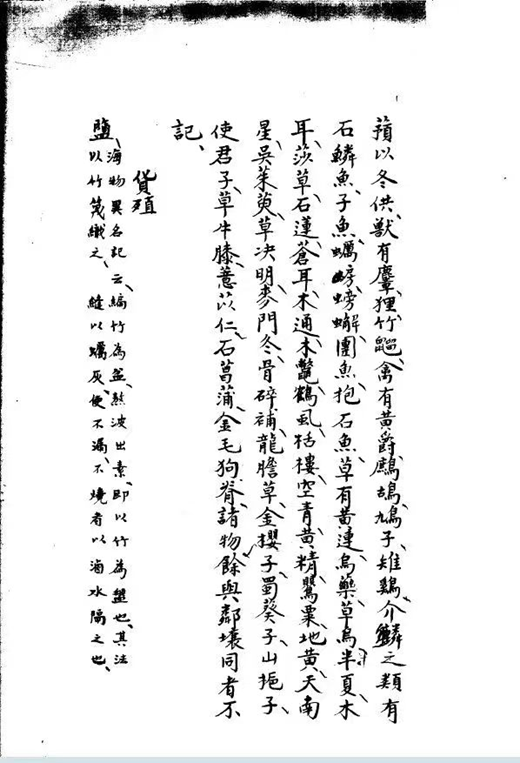 蘋以冬供、獸有麞、狸、竹䶉、禽有黃爵、鷓鴣、鳩子、雉、鷄、介鱗之類有
石鱗魚、子魚、蠣蝣、螃蠏、團魚、抱石魚、草有黃連、烏藥、草烏、半夏、木
耳、莎草、石蓮、蒼耳、木通、木鼈、鶴虱、栝樓、空青、黃精、罌粟、地黃、天南
星、吳茱萸、草决明、麥門冬、骨碎補、龍膽草、金櫻子、蜀葵子、山梔子、
使君子、草牛膝、薏苡仁、石菖蒲、金毛狗脊、諸物餘與鄰壤同者不
記、
貨殖
鹽、海物異名記云、編竹為盆、熬波出素、即以竹為盤也、其法
以竹篾織之、縫以蠣灰、便不漏、不燒者以滷水隔之也、